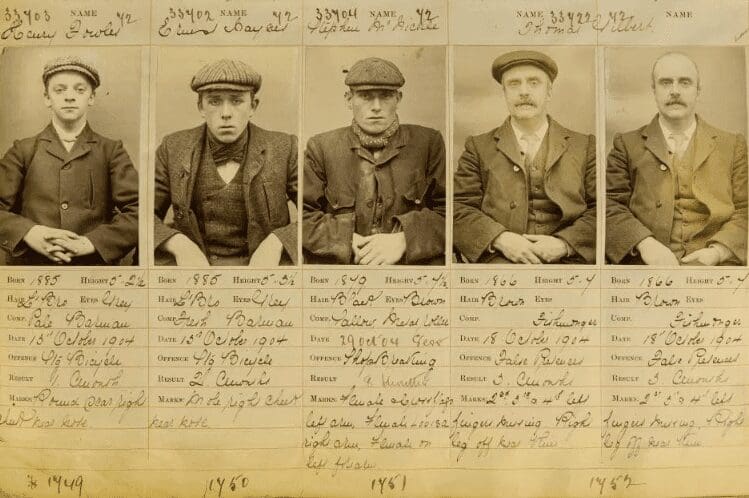 33703 NAME 72 33702 NAME 72 33704 NAME 72 NAME 33722 72 NAME
Henry Fowles Ernest Haynes Stephen McNickle Thomas Gilbert
BORN 1885 HEIGHT 5-2½ BORN 1885 HEIGHT 5-3½ BORN 1879 HEIGHT 5-4½ BORN 1866 HEIGHT 5-7 BORN 1866 HEIGHT 5-7
HAIR L' Bro EYES Grey HAIR L' Bro EYES Grey HAIR Black EYES Brown HAIR Brown EYES HAIR Brown EYES
COMP. Pale Barman COMP. Fresh Barman COMP. Sallow COMP. Fishmonger COMP. Fishmonger
DATE 15th October 1904 DATE 15th October 1904 DATE 29 Oct 04 DATE 18 October 1904 DATE 18th October 1904
OFFENCE Stg Bicycle OFFENCE Stg Bicycle OFFENCE Shop Breaking OFFENCE False Pretences OFFENCE False Pretences
RESULT 1 RESULT 2 RESULT RESULT 3 RESULT 3
MARKS Round scar right MARKS Mole right cheek MARKS Female MARKS 2nd 3rd & 4th left MARKS 2nd 3rd & 4th left
cheek near nose near nose left arm, Female fingers missing, Right fingers missing, Right
right arm, Female on leg off near knee leg off near knee
left forearm
1749 1750 1751 1752